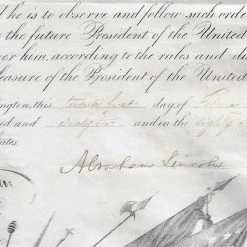 d he is to observe and follow such orde
the future President of the United
ver him, according to the rules and dis
leasure of the President of the United
ngton, this twenty first day of
ed and Sixty two and in the eighty
tates.
Abraham Lincoln